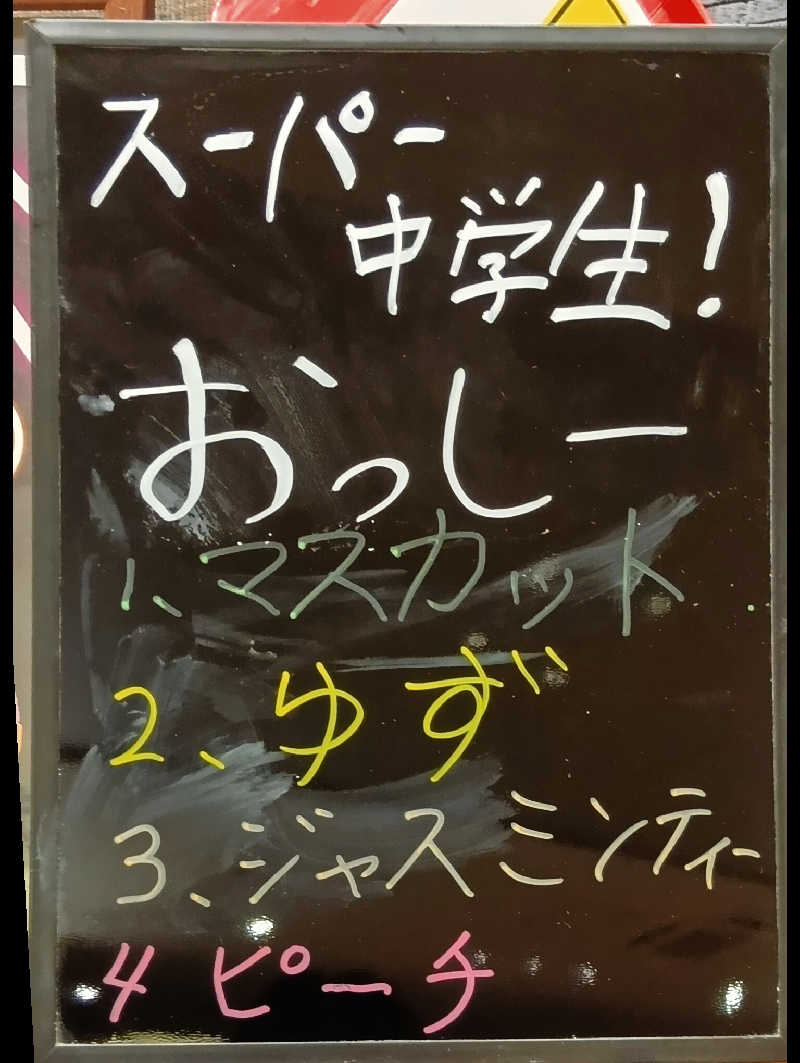 スーパー
中学生!
おっしー
1、マスカット
2、ゆず
3、ジャスミンティー
4 ピーチ